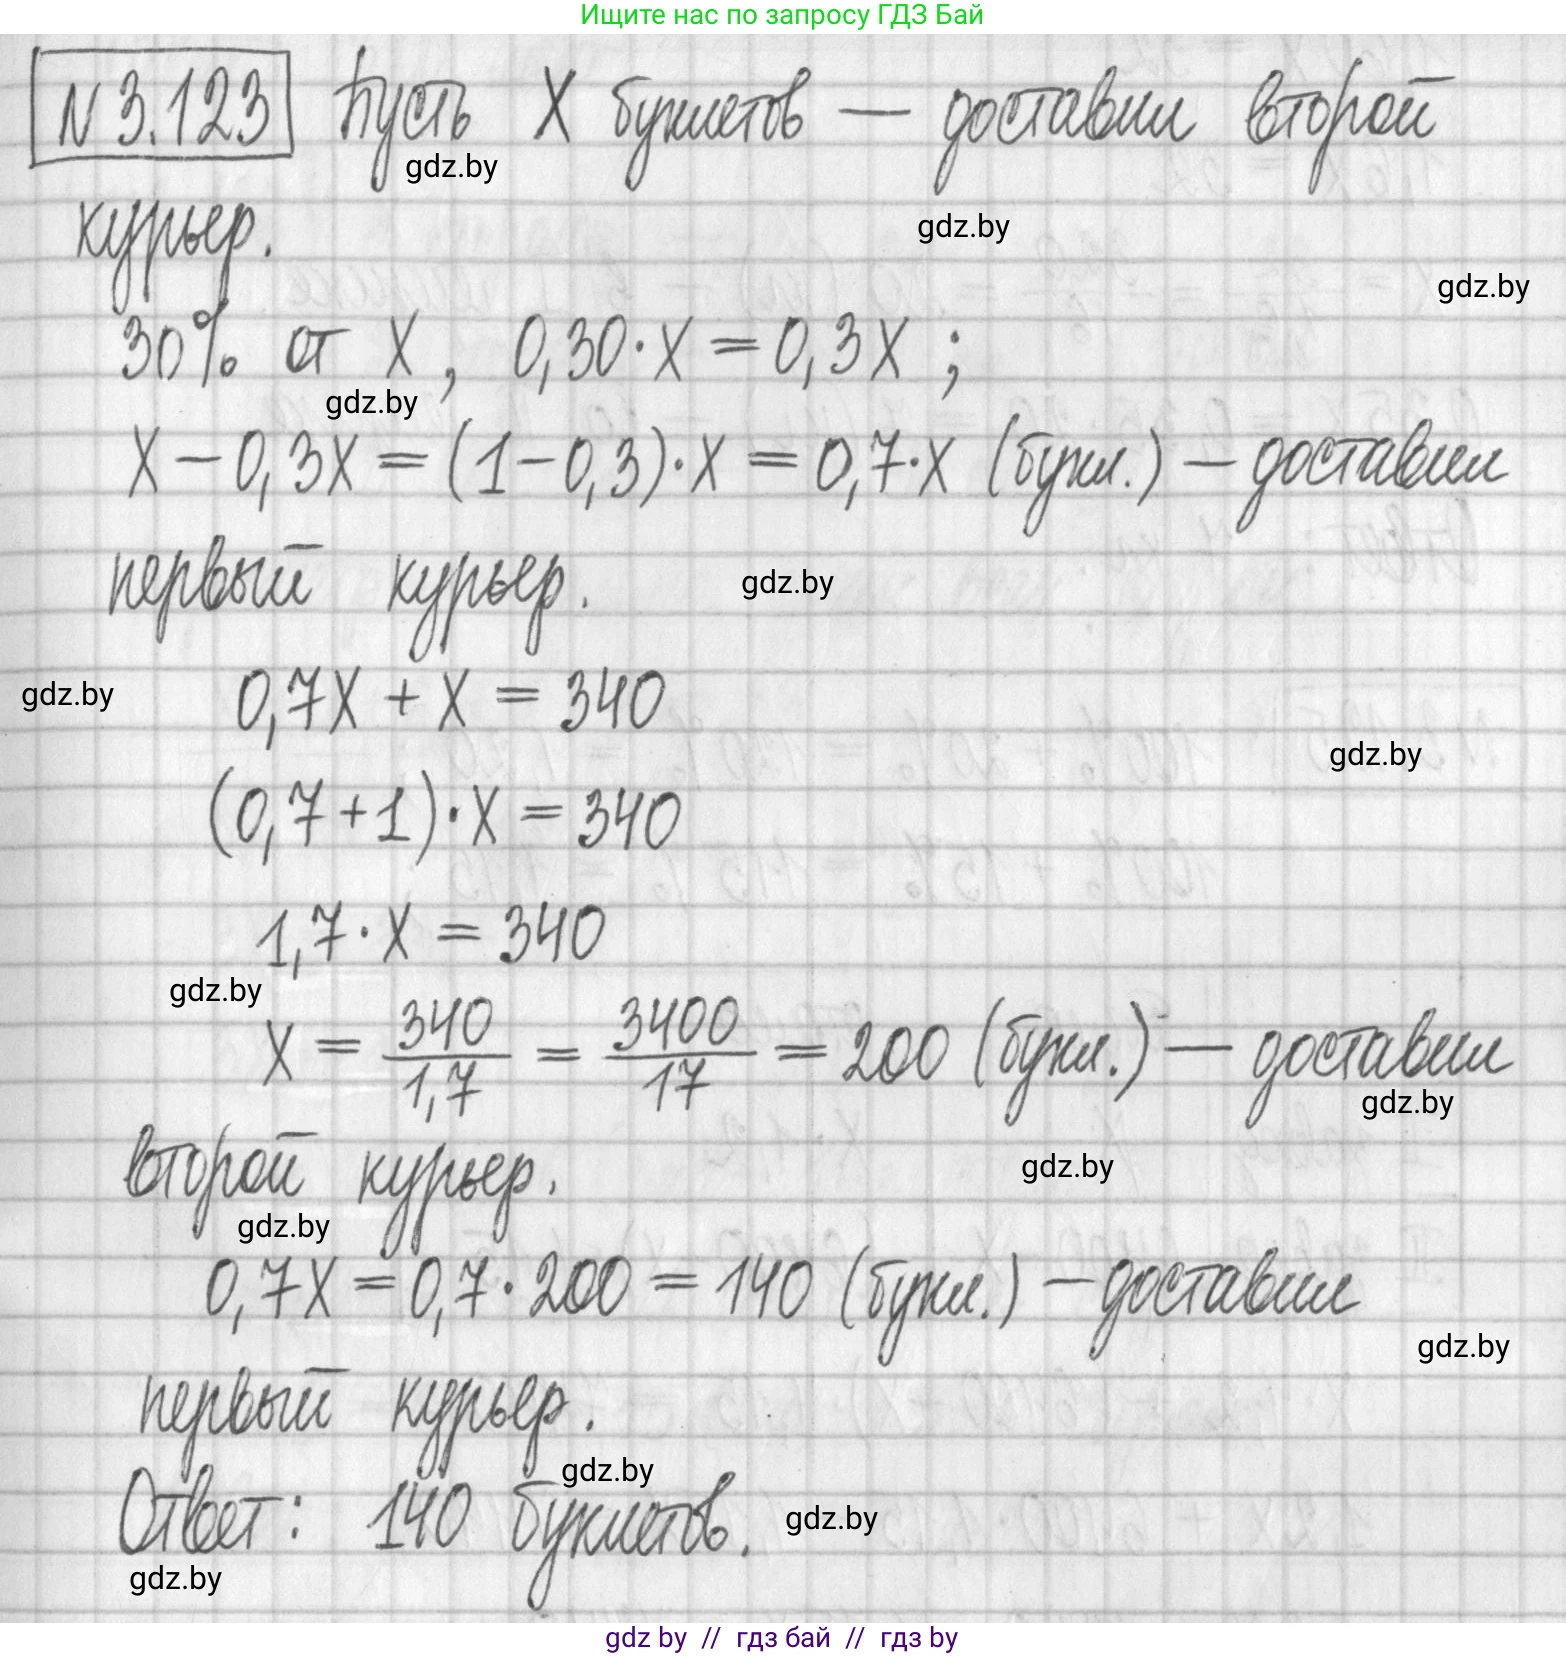 Ищите нас по запросу ГДЗ Бай
N 3.123 Пусть X буклетов — доставил второй
gdz.by
курьер.
gdz.by
gdz.by
30% от X, 0,30·X = 0,3X ;
gdz.by
X − 0,3X = (1 − 0,3)·X = 0,7·X (букл.) — доставил
первый курьер.
gdz.by
gdz.by
0,7X + X = 340
gdz.by
(0,7 + 1)·X = 340
1,7·X = 340
gdz.by
X = 340/1,7 = 3400/17 = 200 (букл.) — доставил
gdz.by
второй курьер.
gdz.by
gdz.by
0,7X = 0,7·200 = 140 (букл.) — доставил
gdz.by
первый курьер.
gdz.by
Ответ: 140 буклетов.
gdz.by
gdz.by
gdz by // гдз бай // гдз by